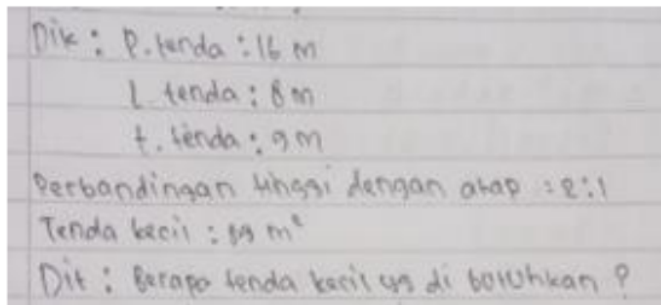 Dik : P. tenda : 16 m
l tenda : 8 m
t. tenda : 9 m
Perbandingan tinggi dengan atap : 2:1
Tenda kecil : m²
Dit : Berapa tenda kecil yg di butuhkan ?